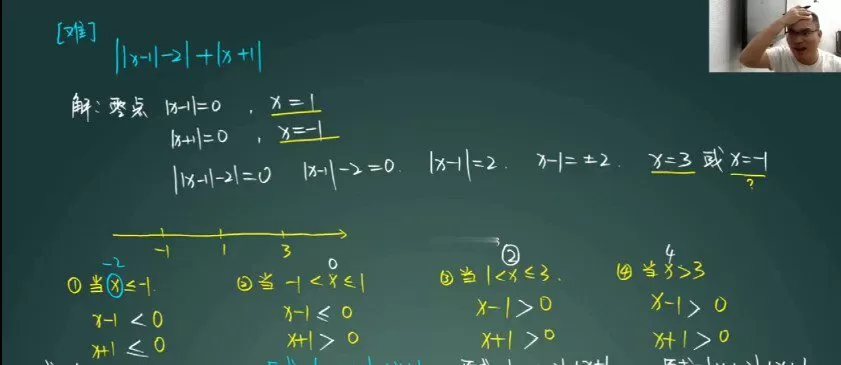 [难]
||x-1|-2|+|x+1|
解：零点 |x-1|=0 , x=1
|x+1|=0 , x=-1
||x-1|-2|=0 |x-1|-2=0. |x-1|=2. x-1=±2. x=3 或 x=-1
?
-1 1 3
-2 0 ② 4
①当 x≤-1. ②当 -1<x≤1 ③当 1<x≤3. ④当 x>3
x-1<0 x-1≤0 x-1>0 x-1>0
x+1≤0 x+1>0 x+1>0 x+1>0